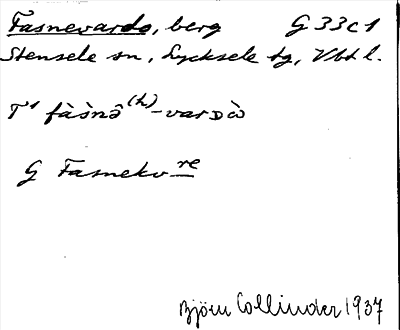 Fasnevardo, berg G 33c1
Stensele sn, Lycksele tg, Vbt l.
T¹ fàsnə̂(h)-varᴅò
G Fasnekv re
Björn Collinder 1937